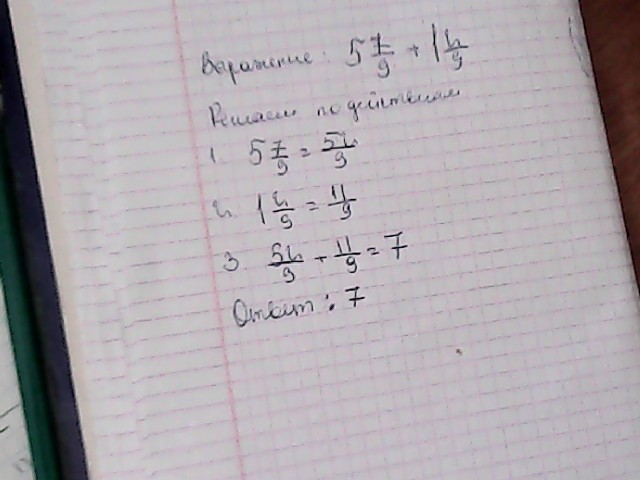 Выражение: 5 7/9 + 1 2/9
Решаем по действиям
1. 5 7/9 = 52/9
2. 1 2/9 = 11/9
3 52/9 + 11/9 = 7
Ответ: 7